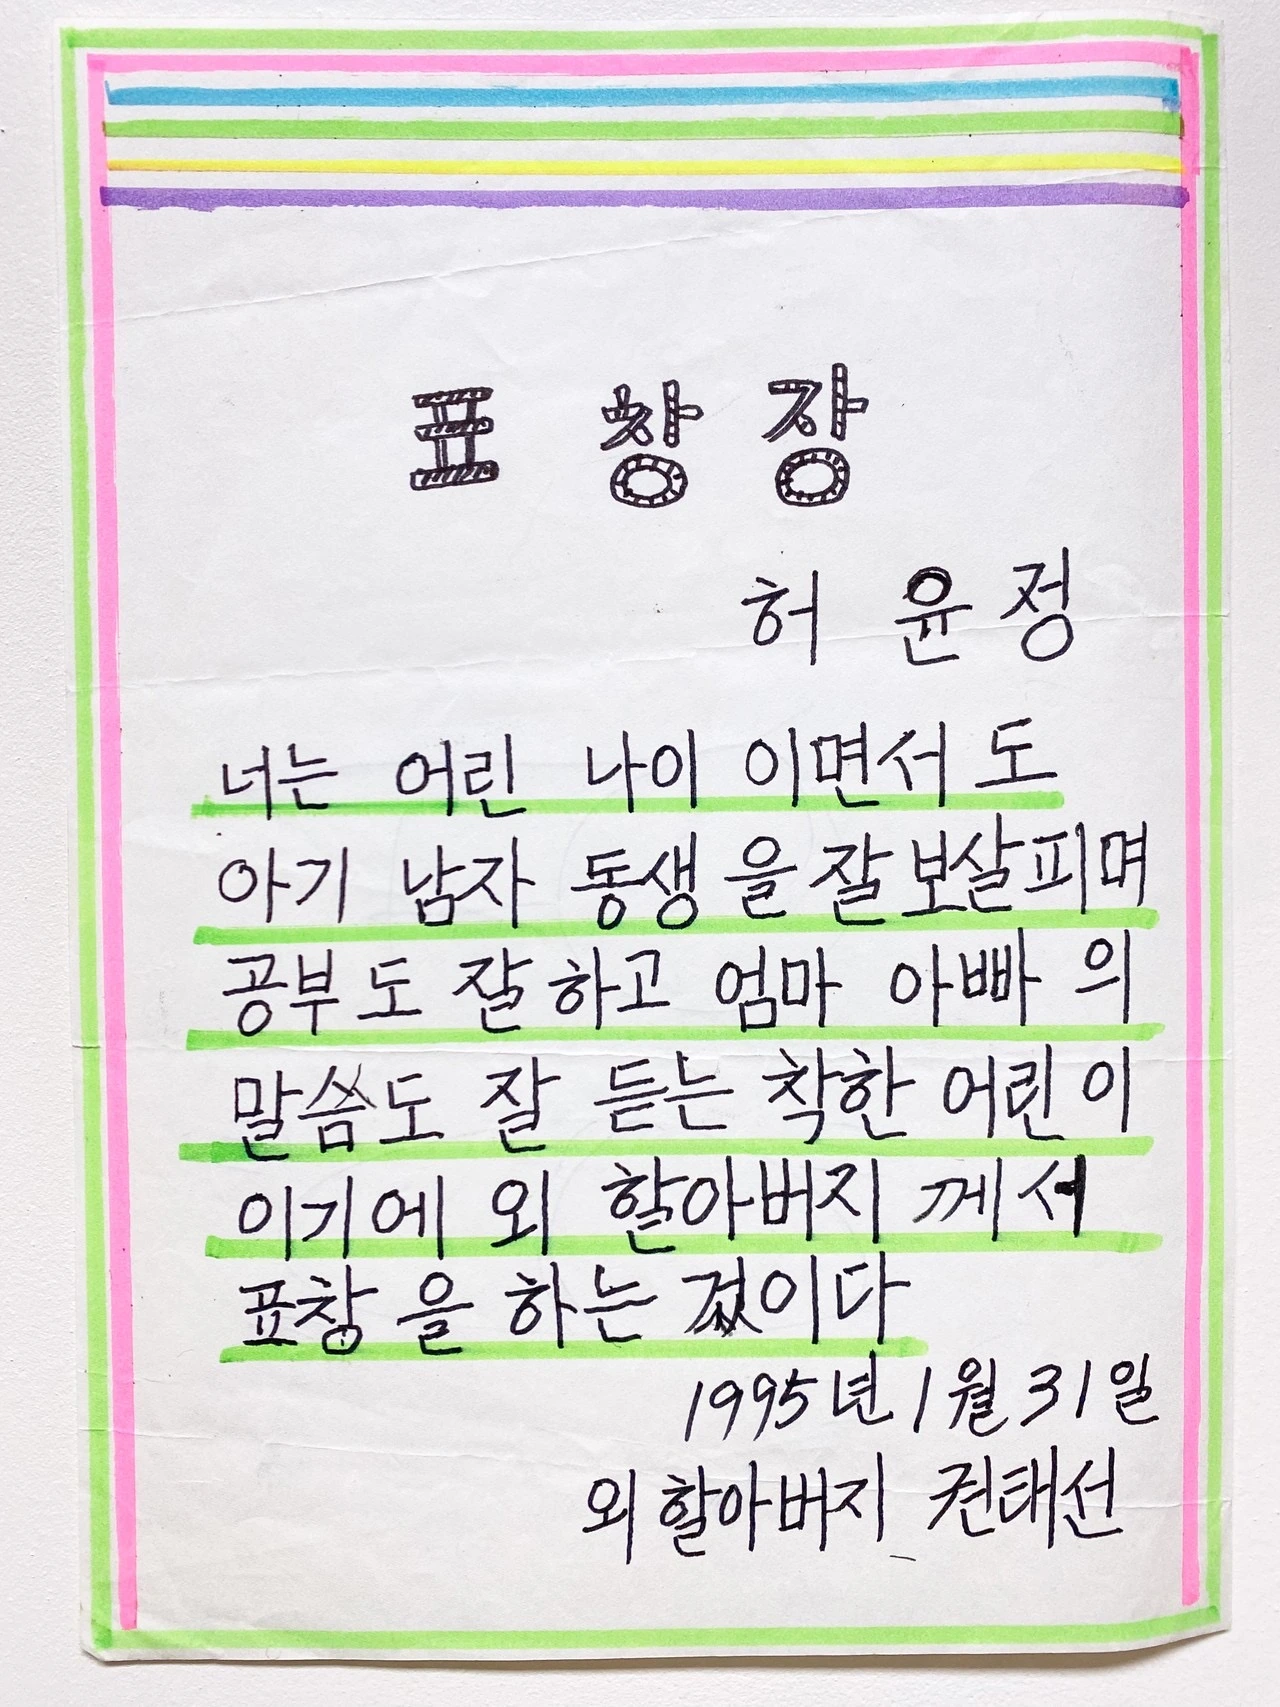 표 창 장
허 윤 정
너는 어린 나이 이면서 도
아기 남자 동생 을 잘 보살피며
공부도 잘 하고 엄마 아빠 의
말씀도 잘 듣는 착한 어린이
이기에 외 할아버지 께서
표창 을 하는 것이다
1995년 1월 31일
외 할아버지 권태선